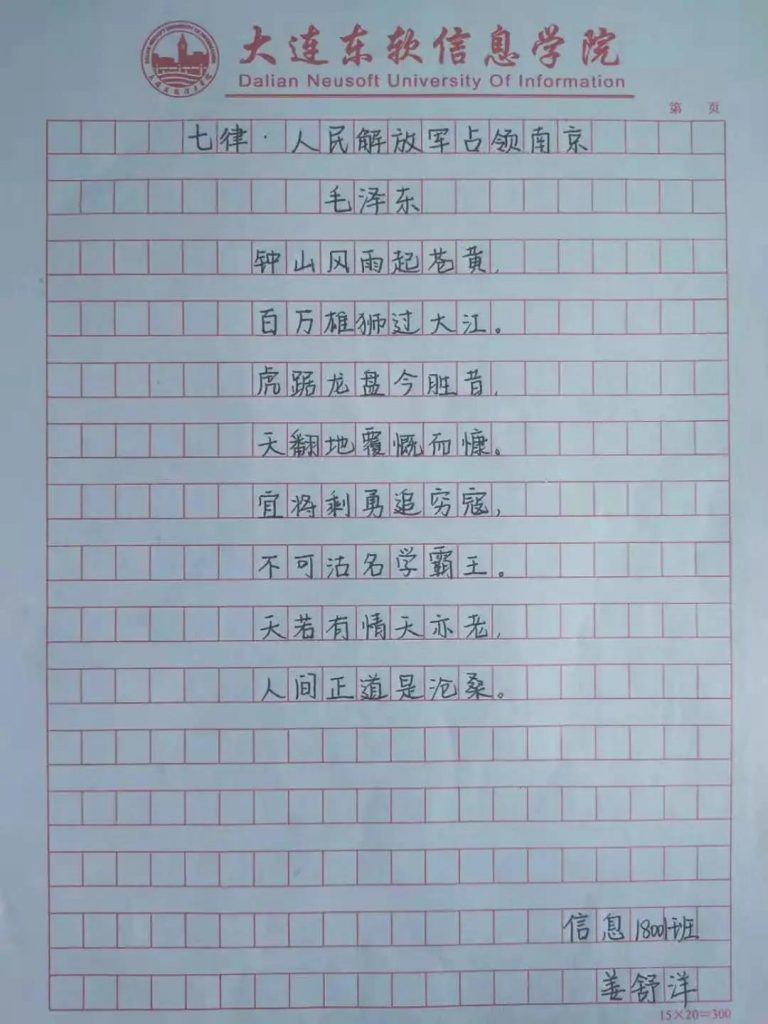 大连东软信息学院
Dalian Neusoft University Of Information
第 页
七律·人民解放军占领南京
毛泽东
钟山风雨起苍黄,
百万雄狮过大江。
虎踞龙盘今胜昔,
天翻地覆慨而慷。
宜将剩勇追穷寇,
不可沽名学霸王。
天若有情天亦老,
人间正道是沧桑。
信息18001班
姜舒洋
15×20=300